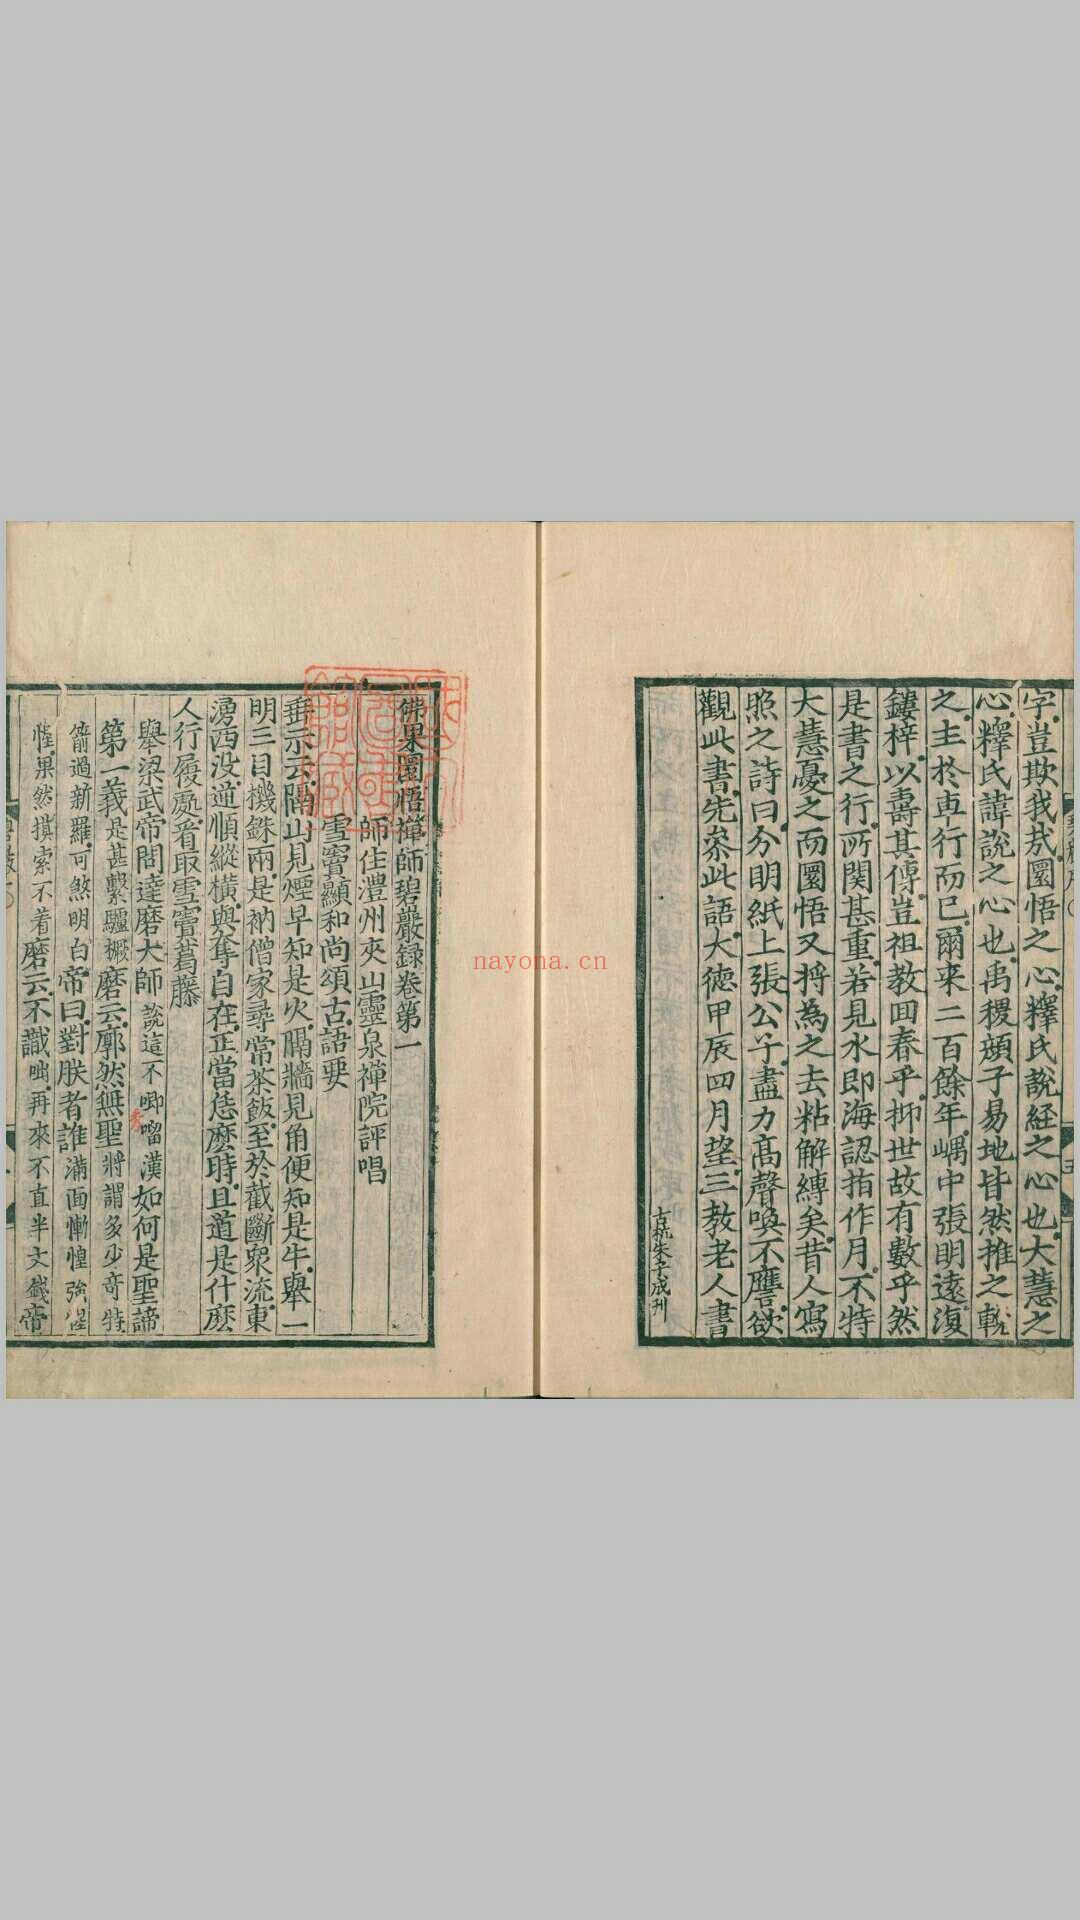 字豈欺我哉圜悟之心釋氏說經之心也大慧之
心釋氏諱說之心也禹稷顔子易地皆然推之輓
之主於車行而已爾来二百餘年嵎中張明遠復
鏤梓以壽其傳豈祖教囬春乎抑世故有數乎然
是書之行所関甚重若見水即海認指作月不特
大慧憂之而圜悟又將為之去粘解縛矣昔人寫
照之詩曰分明紙上張公子盡力髙聲喚不譍欲
觀此書先叅此語大德甲辰四月望三教老人書
古杭朱子成刊
佛果圜悟禪師碧巖録卷第一
師住澧州夾山靈泉禪院評唱
雪竇顯和尚頌古語要
垂示云隔山見煙早知是火隔牆見角便知是牛舉一
明三目機銖兩是衲僧家尋常茶飯至於截斷衆流東
湧西没逆順縱橫與奪自在正當恁麽時且道是什麽
人行履處看取雪竇葛藤
舉梁武帝問達磨大師說這不唧㗰漢如何是聖諦
第一義是甚繫驢橛磨云廓然無聖將謂多少奇特
箭過新羅可煞明白帝曰對朕者誰滿面慚惶強惺
惺果然摸索不着磨云不識咄再來不直半文錢帝
nayona.cn